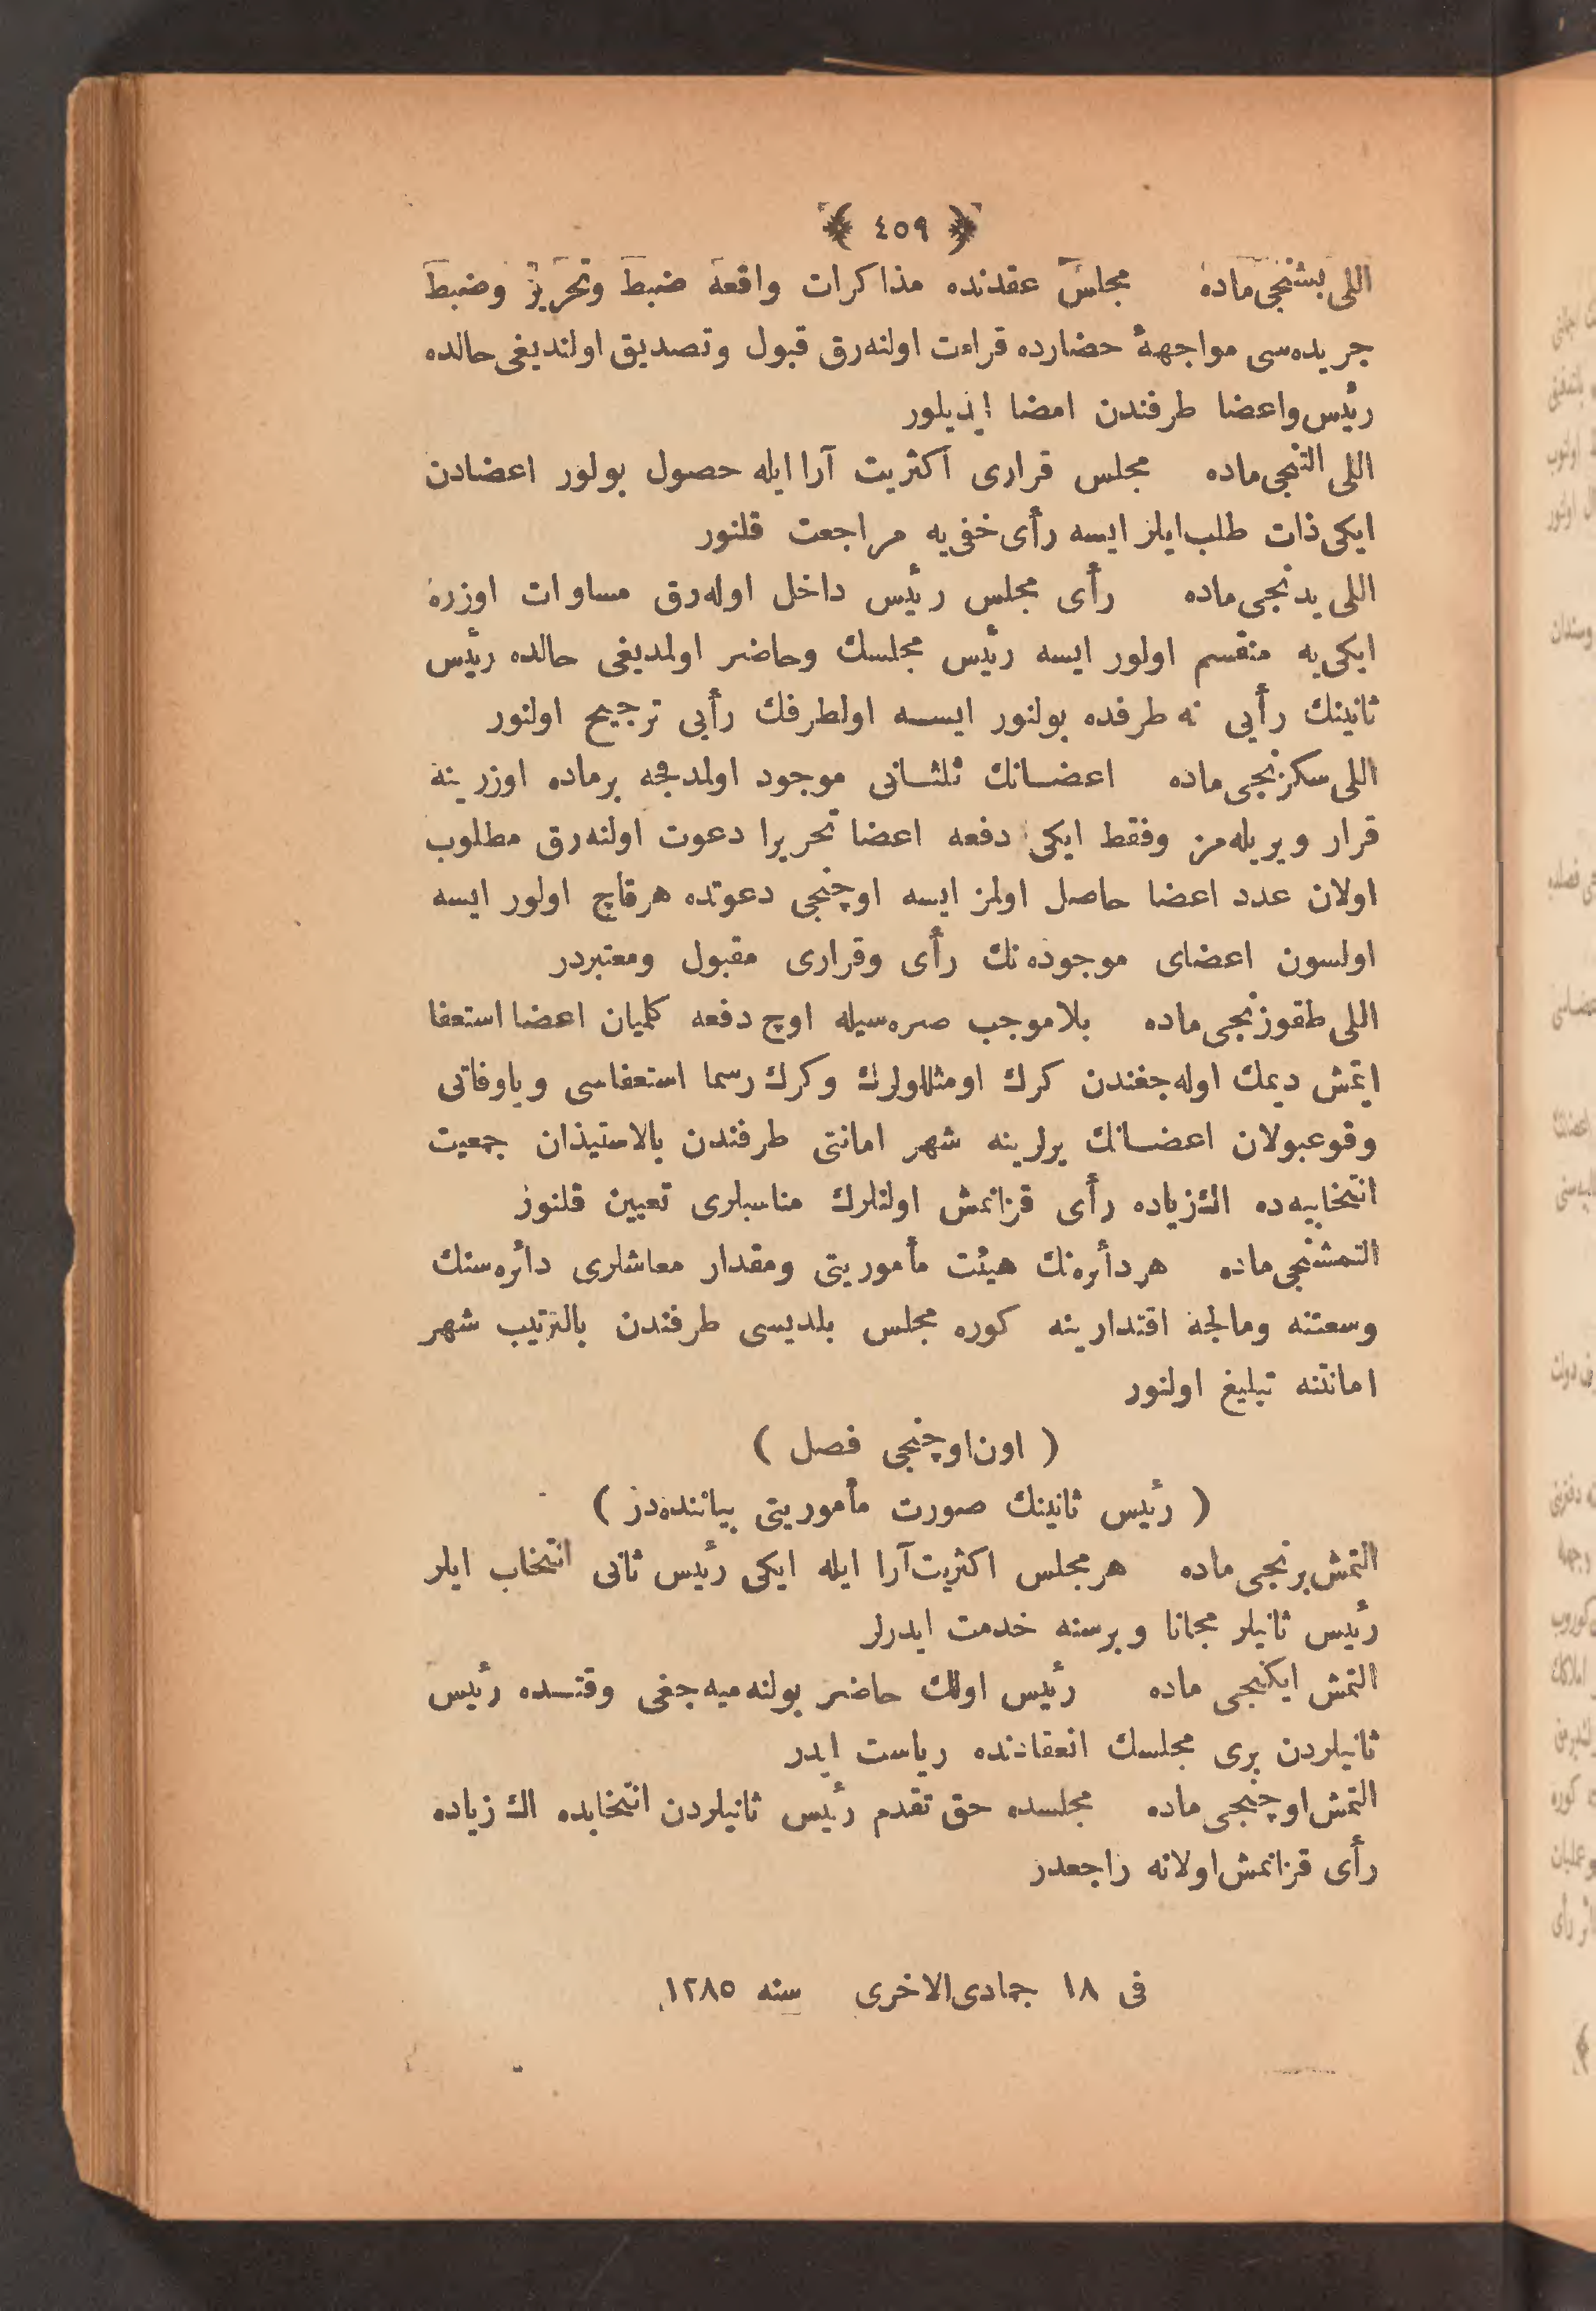 ﴿ ٤٥٩ ﴾
اللی بشنجی ماده مجلس عقدنده مذاکرات واقعه ضبط وتحریر وضبط
جریده‌سی مواجههٔ حضارده قراءت اولنه‌رق قبول وتصدیق اولندیغی حالده
رئیس واعضا طرفندن امضا ایدیلور
اللی التنجی ماده مجلس قراری اکثریت آرا ایله حصول بولور اعضادن
ایکی ذات طلب ایلر ایسه رأی خفی‌یه مراجعت قلنور
اللی یدنجی ماده رأی مجلس رئیس داخل اوله‌رق مساوات اوزره
ایکی‌یه منقسم اولور ایسه رئیس مجلسك وحاضر اولمدیغی حالده رئیس
ثانینك رأیی نه طرفده بولنور ایسه اولطرفك رأیی ترجیح اولنور
اللی سکزنجی ماده اعضانك ثلثانی موجود اولمدقجه برماده اوزرینه
قرار ویریله‌مز وفقط ایکی دفعه اعضا تحریرا دعوت اولنه‌رق مطلوب
اولان عدد اعضا حاصل اولمز ایسه اوچنجی دعوتده هرقاچ اولور ایسه
اولسون اعضای موجوده‌نك رأی وقراری مقبول ومعتبردر
اللی طقوزنجی ماده بلاموجب صره‌سیله اوچ دفعه کلمیان اعضا استعفا
ایتمش دیمك اوله‌جغندن کرك اومثللولرك وکرك رسما استعفاسی ویاوفاتی
وقوعبولان اعضانك یرلرینه شهر امانتی طرفندن بالاستیذان جمعیت
انتخابیه‌ده الك زیاده رأی قزانمش اولنلرك مناسبلری تعیین قلنور
التمشنجی ماده هر دائره‌نك هیئت مأموریتی ومقدار معاشلری دائره‌سنك
وسعتنه ومالجه اقتدارینه کوره مجلس بلدیسی طرفندن بالترتیب شهر
امانتنه تبلیغ اولنور
( اون اوچنجی فصل )
( رئیس ثانینك صورت مأموریتی بیاننده‌در )
التمش برنجی ماده هر مجلس اکثریت آرا ایله ایکی رئیس ثانی انتخاب ایلر
رئیس ثانیلر مجانا وبرسنه خدمت ایدرلر
التمش ایکنجی ماده رئیس اولك حاضر بولنه‌میه‌جغی وقتده رئیس
ثانیلردن بری مجلسك انعقادنده ریاست ایدر
التمش اوچنجی ماده مجلسده حق تقدم رئیس ثانیلردن انتخابده الك زیاده
رأی قزانمش اولانه راجعدر
فی ١٨ جمادی الاخری سنه ١٢٨٥